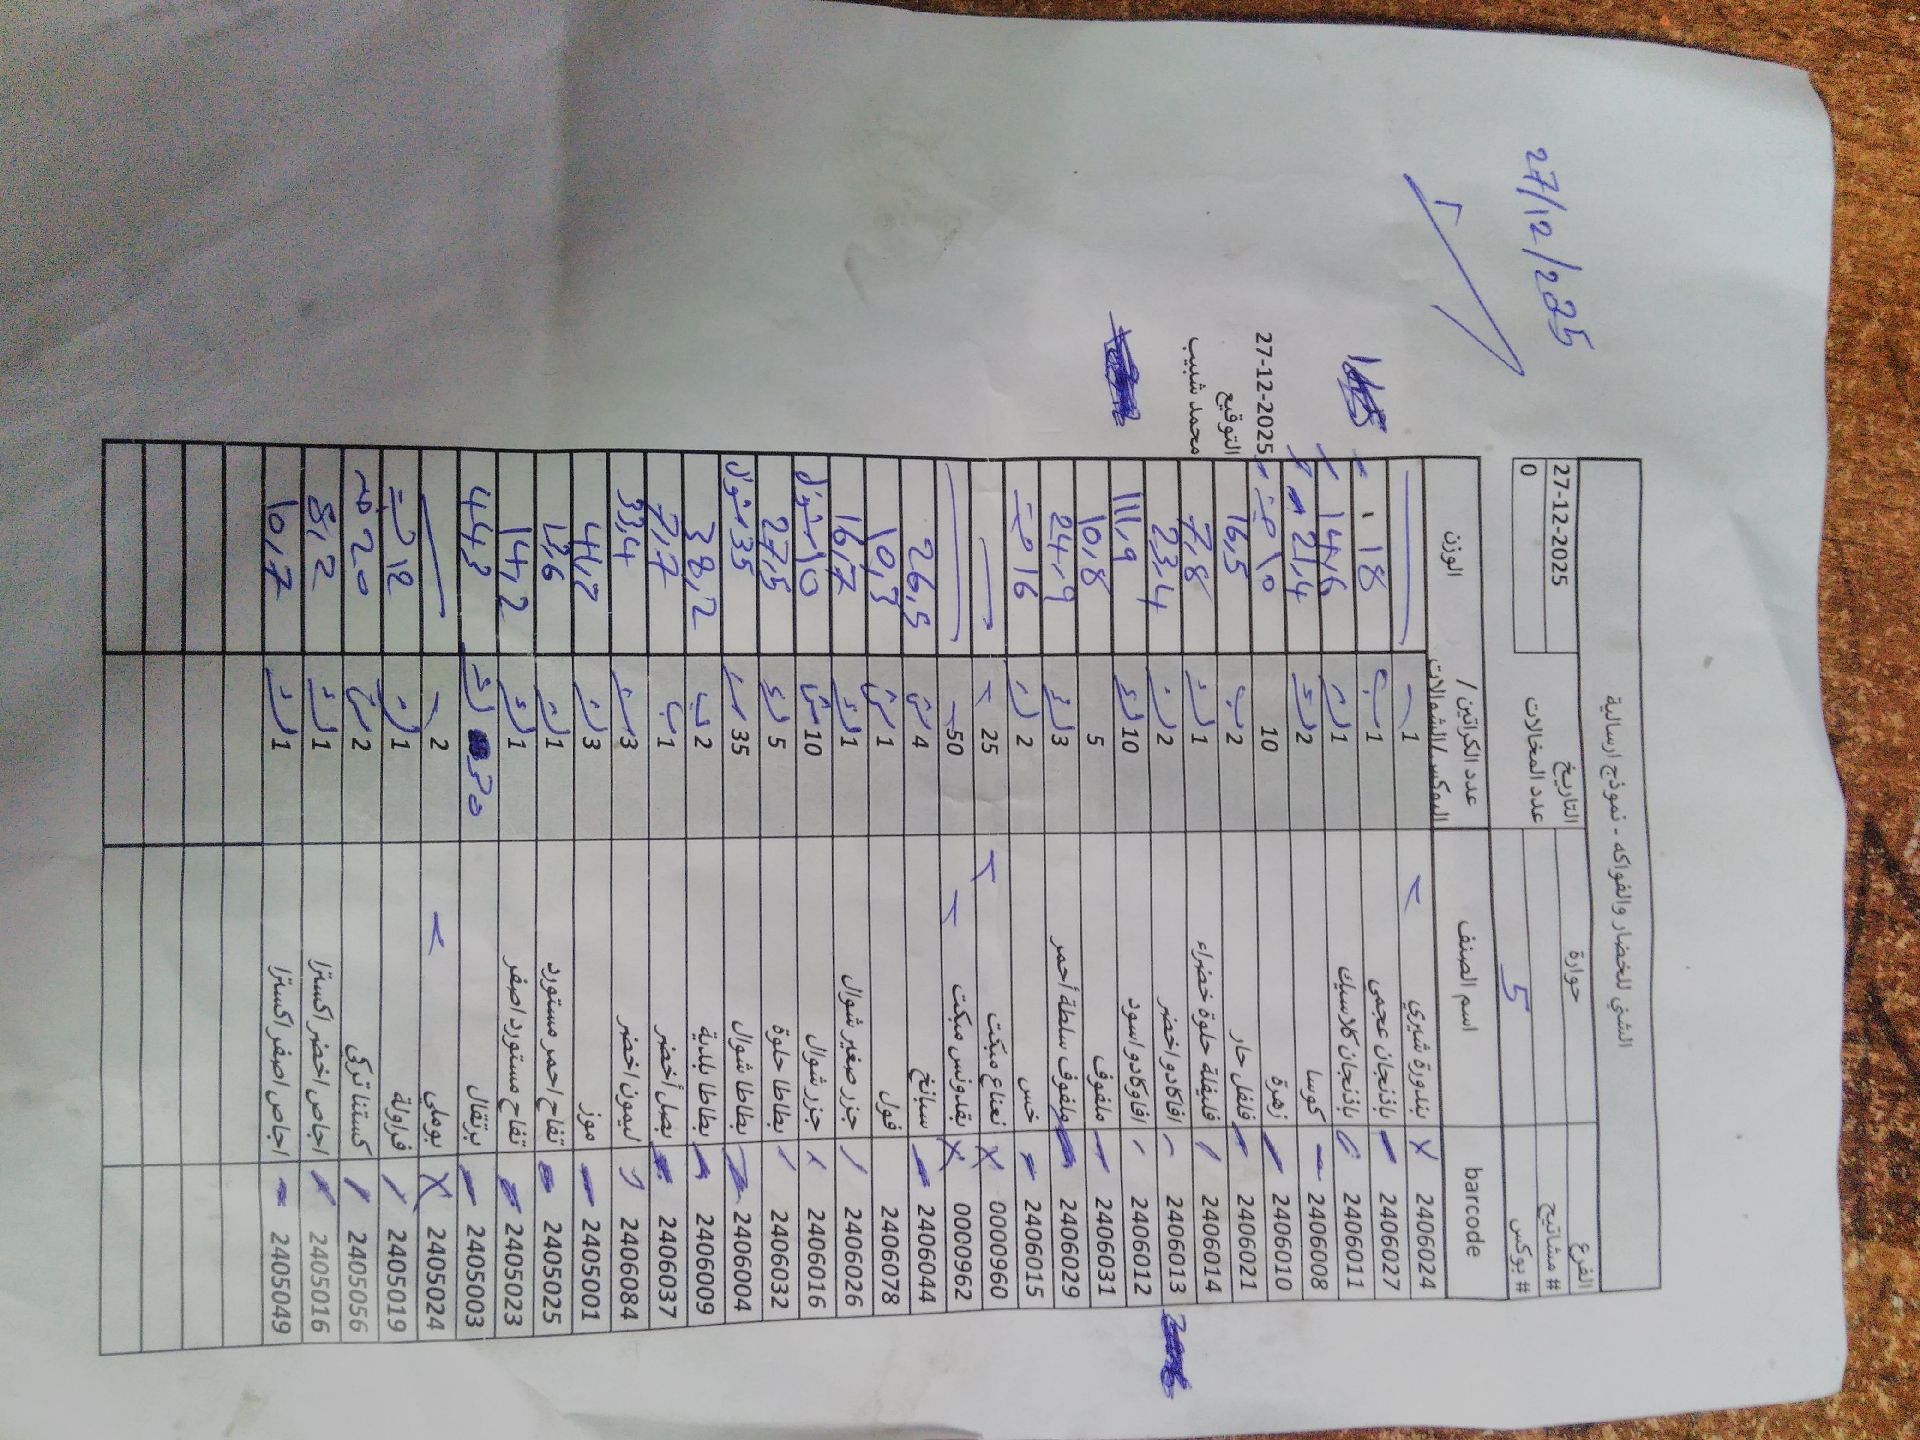 27/12/2025
الشني للخضار والفواكه - نموذج ارسالية
الفرع حوارة التاريخ 27-12-2025
# مشاتيح عدد المخالات 0
# بوكس 5
barcode اسم الصنف عدد الكراتين / البوكس / الشوالات الوزن
2406024 بندورة شيري 1
2406027 باذنجان عجمي 1 18
2406011 باذنجان كلاسيك 1 14,6
2406008 كوسا 2 21,4
2406010 زهرة 10 10 حبة
2406021 فلفل حار 2 16,5
2406014 فليفلة حلوة خضراء 1 7,8
2406013 افاكادو اخضر 2 23,4
2406012 افاوكادو اسود 10 111,9
2406031 ملفوف 5 10,8
2406029 ملفوف سلطة أحمر 3 24,9
2406015 خس 2 16 حبة
0000960 نعناع مبكت 25
0000962 بقدونس مبكت 50
2406044 سبانخ 4 26,5
2406078 فول 1 10,3
2406026 جزر صغير شوال 1 16,7
2406016 جزر شوال 10 10 شوال
2406032 بطاطا حلوة 5 27,5
2406004 بطاطا شوال 35 35 شوال
2406009 بطاطا بلدية 2 38,2
2406037 بصل أخضر 1 7,7
2406084 ليمون اخضر 3 33,4
2405001 موز 3 44,2
2405025 تفاح احمر مستورد 1
2405023 تفاح مستورد اصفر 1 14,2
2405003 برتقال 30 443
2405024 بوملي 2
2405019 فراولة 1 12 حبة
2405056 كستنا تركي 2 20
2405016 اجاص اخضر اكسترا 1 8,2
2405049 اجاص اصفر اكسترا 1 10,7
27-12-2025
التوقيع
محمد شبيب